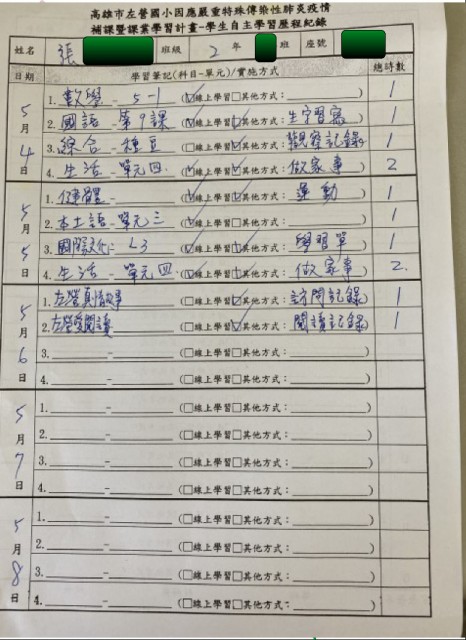 高雄市左營國小因應嚴重特殊傳染性肺炎疫情
補課暨課業學習計畫-學生自主學習歷程紀錄
姓名 張 班級 2 年 班 座號
日期 學習筆記(科目-單元)/實施方式 總時數
5月4日
1. 數學 - 5-1 (☑線上學習□其他方式: ) 1
2. 國語 - 第9課 (☑線上學習☑其他方式: 生字習寫 ) 1
3. 綜合 - 種豆 (□線上學習☑其他方式: 觀察記錄 ) 1
4. 生活 - 單元四. (☑線上學習☑其他方式: 做家事 ) 2
5月5日
1. 健體 - (☑線上學習☑其他方式: 運動 ) 1
2. 本土語 - 單元三 (☑線上學習□其他方式: ) 1
3. 國際文化: L3 (☑線上學習☑其他方式: 學習單 ) 1
4. 生活 - 單元四. (☑線上學習☑其他方式: 做家事 ) 2.
5月6日
1. 左營真情故事 (□線上學習☑其他方式: 訪問記錄 ) 1
2. 左營愛閱讀 (□線上學習☑其他方式: 閱讀記錄 ) 1
3. - (□線上學習□其他方式: )
4. - (□線上學習□其他方式: )
5月7日
1. - (□線上學習□其他方式: )
2. - (□線上學習□其他方式: )
3. - (□線上學習□其他方式: )
4. - (□線上學習□其他方式: )
5月8日
1. - (□線上學習□其他方式: )
2. - (□線上學習□其他方式: )
3. - (□線上學習□其他方式: )
4. - (□線上學習□其他方式: )